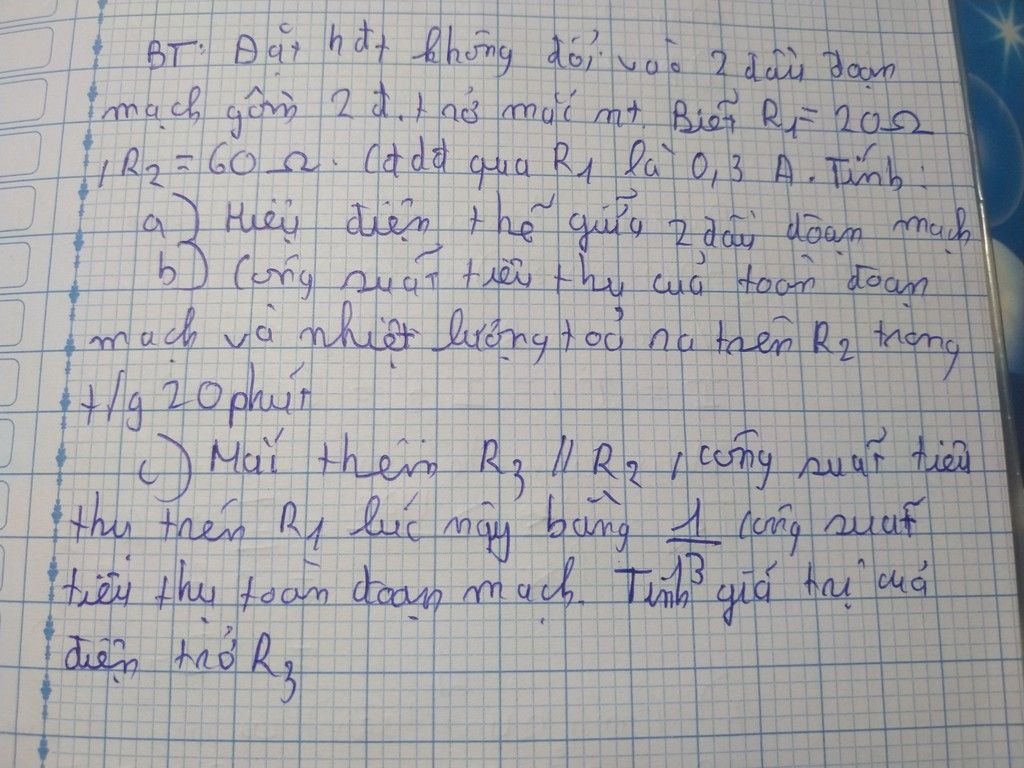 BT: Đặt hđt không đổi vào 2 đầu đoạn
mạch gồm 2 đ.trở mắc nt. Biết R1 = 20Ω
, R2 = 60 Ω. Cđdđ qua R1 là 0,3 A. Tính:
a) Hiệu điện thế giữa 2 đầu đoạn mạch
b) Công suất tiêu thụ của toàn đoạn
mạch và nhiệt lượng toả ra trên R2 trong
t/g 20 phút
c) Mắc thêm R3 // R2, công suất tiêu
thụ trên R1 lúc này bằng 1/3 công suất
tiêu thụ toàn đoạn mạch. Tính giá trị của
điện trở R3